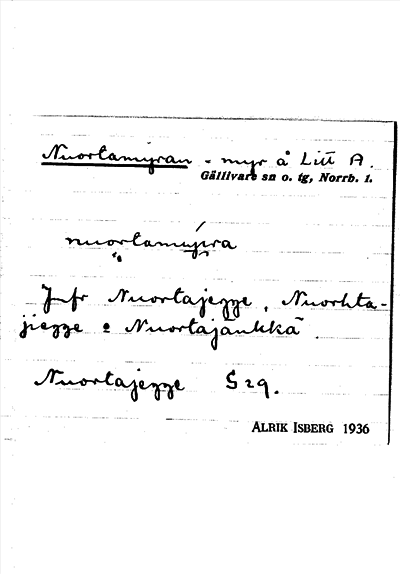 Nuortamyran - myr å Litt A.
Gällivare sn o. tg, Norrb. l.
nuortamyira
Jnfr Nuortajegge, Nuorhta-
jiegge o Nuortajänkkä.
Nuortajegge S 29.
ALRIK ISBERG 1936